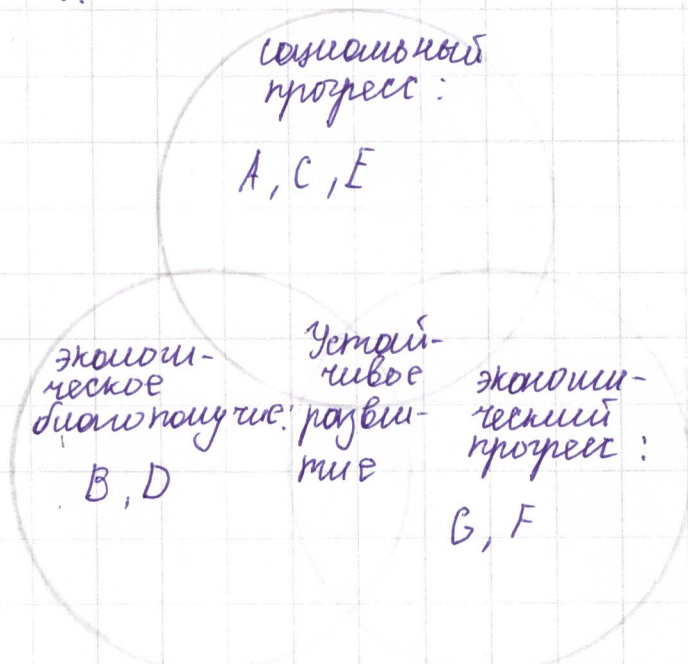 социальный
прогресс:
A, C, E
экологи-
ческое
благополучие:
B, D
Устой-
чивое
разви-
тие
экономи-
ческий
прогресс:
G, F